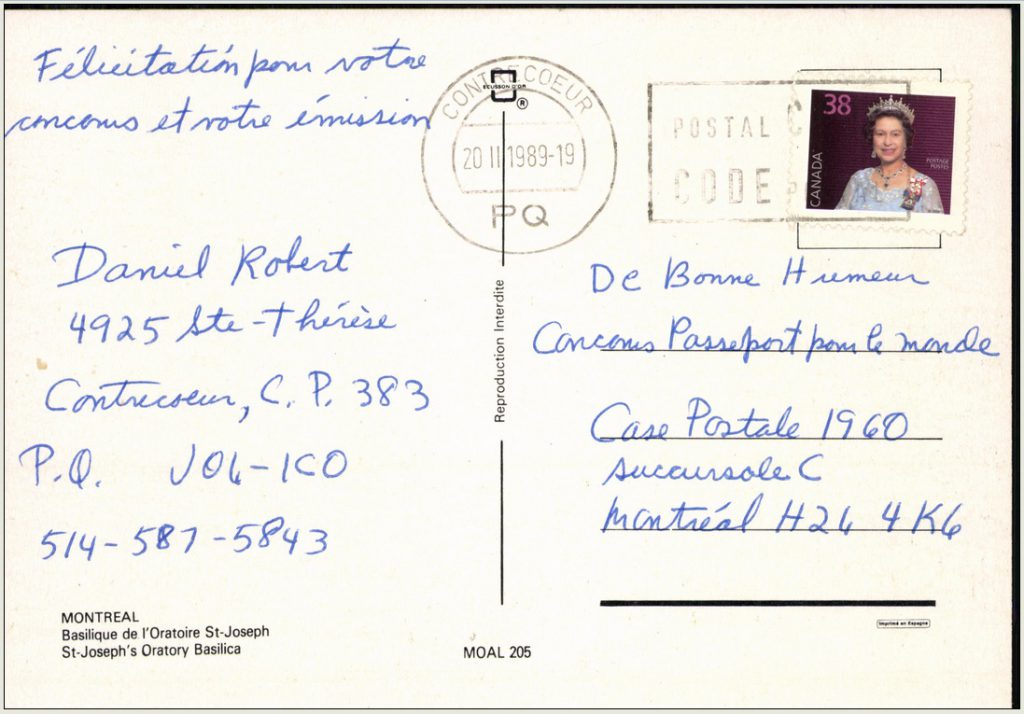 Félicitation pour votre
concours et votre émission
Daniel Robert
4925 Ste-Thérèse
Contrecoeur, C. P. 383
P.Q. J0L-1C0
514-587-5843
MONTREAL
Basilique de l'Oratoire St-Joseph
St-Joseph's Oratory Basilica
CONTRECOEUR
ECUSSON D'OR
®
20 II 1989-19
PQ
Reproduction Interdite
MOAL 205
POSTAL C
CODE P
38
CANADA
POSTAGE
POSTES
De Bonne Humeur
Concours Passeport pour le monde
Case Postale 1960
Succursale C
Montréal H2L 4K6
Imprimé en Espagne